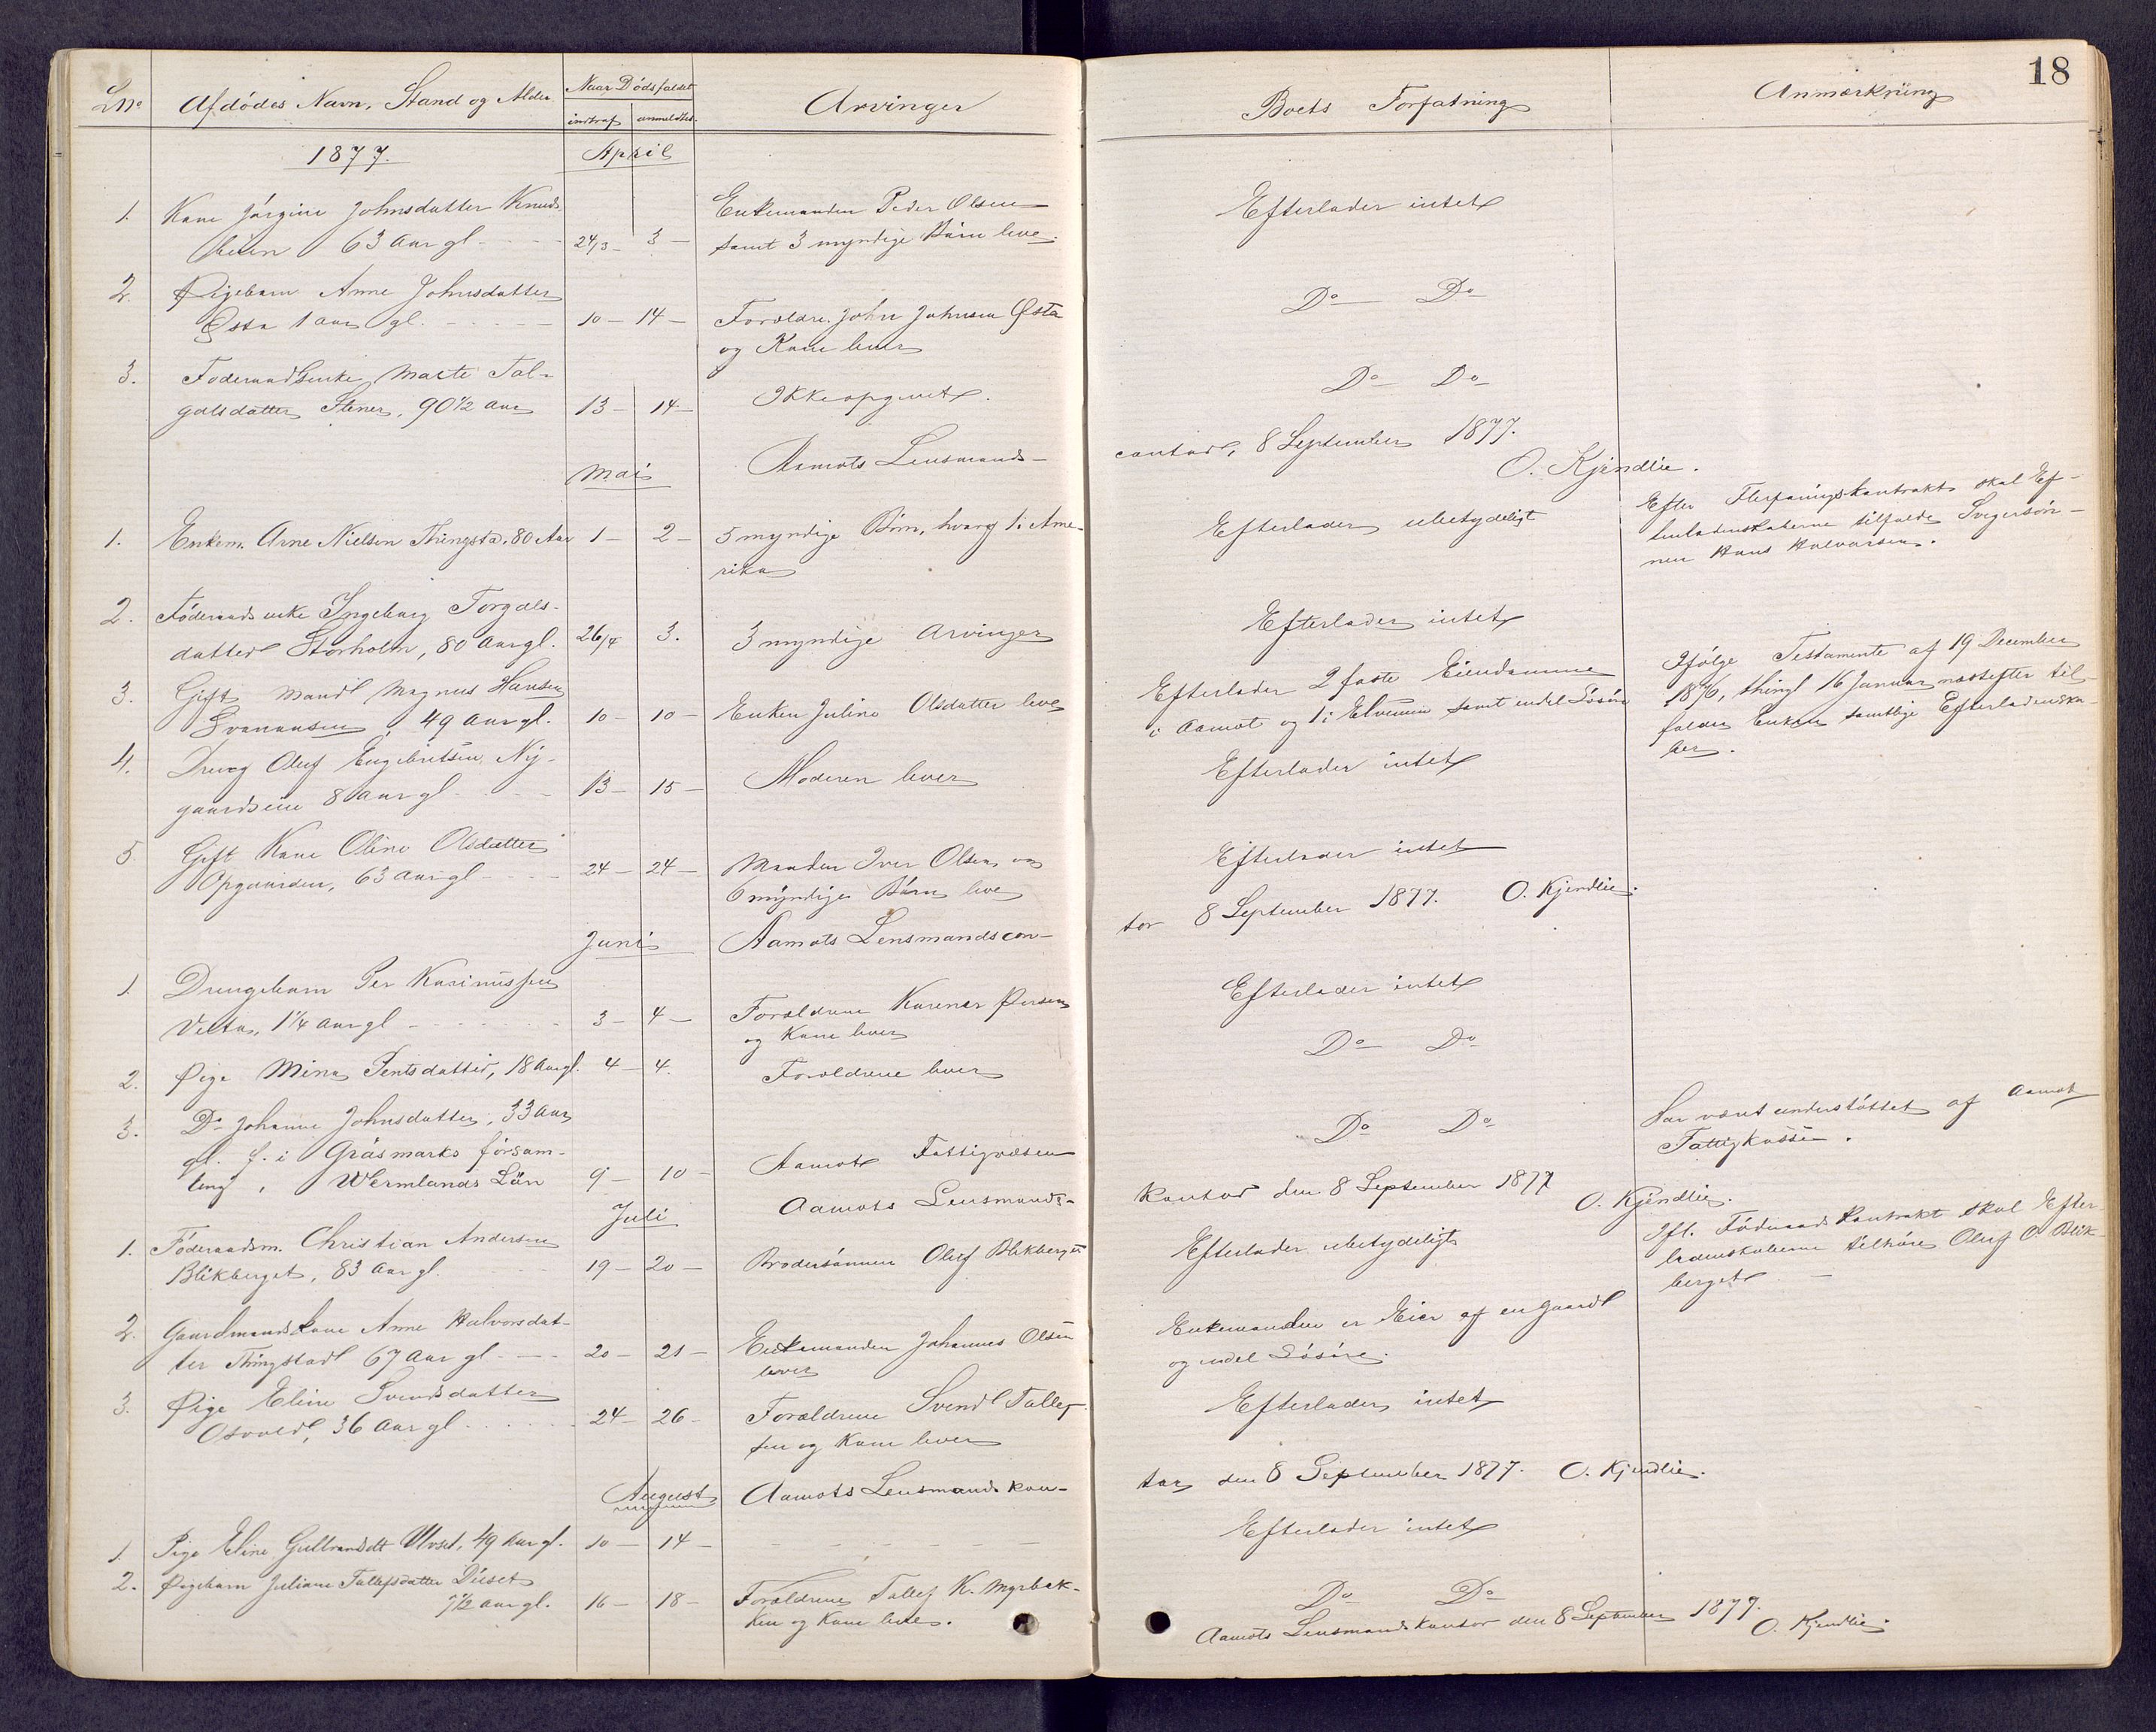 18
LNo Afdødes Navn, Stand og Alder Naar Dødsfaldet indtraf anmeldtes. Arvinger Boets Forfatning Anmærkning
1877. April
1. Kone Jørgine Johnsdatter Knuds
63 Aar gl 24/3 3 Enkemanden Peder Olsen
samt 3 myndige Børn leve. Efterlader intet
2. Pigebarn Anne Johnsdatter
Østa 1 Aar gl. 10 14 Forældre John Johnsen Østa
og Kone lever Do Do
3. Føderaadsenke Marte Tol-
galsdatter Stener, 90 1/2 Aar 13 14 Ikke opgivet. Do Do
Aamots Lensmands-
contor, 8 September 1877.
O. Kjendlie.
Mai
1. Enkem. Arne Nielsen Thingstad, 80 Aar 1 2 5 myndige Børn, hvoraf 1 i Ame-
rika Efterlader ubetydeligt
Efter kontrakt skal Ef-
terladenskaberne tilfalde Svigersøn-
nen Hans Halvorsen.
2. Føderaadsenke Ingeborg Torgals-
datter Storholm, 80 Aar gl. 26/4 3. 3 myndige Arvinger Efterlader intet
3. Gift Mand Magnus Hansen
Svanaasen, 49 Aar gl. 10 10 Enken Juline Olsdatter leve
Efterlader 2 faste Eiendomme
i Aamot og 1 i Elverum samt endel Løsøre
Ifølge Testamente af 19 December
1876, thingl 16 Januar næstefter til-
falder Enken samtlige Efterladenska-
ber.
4. Dreng Oluf Engebritsen Ny-
gaardseie 8 Aar gl 13 15 Moderen lever Efterlader intet
5. Gift Kone Oline Olsdatter
Opgaarden, 63 Aar gl 24 24 Manden Iver Olsen og
6 myndige Børn leve Efterlader intet
Aamots Lensmandscon-
tor 8 September 1877. O. Kjendlie.
Juni
1. Drengebarn Per Karinussen
Velta, 1 1/4 Aar gl 3 4 Forældrene Karenus Persen
og Kone lever Efterlader intet
2. Pige Mina Pentsdatter, 18 Aar gl. 4 4. Forældrene lever Do Do
3. Do Johanne Johnsdatter, 33 Aar
gl. f. i Gräsmarks försam-
ling, Wermlands Län 9 10 Aamot Fattigvæsen Do Do
Har været understøttet af Aamot
Fattigkasse.
Aamots Lensmands-
kontor den 8 September 1877
O. Kjendlie.
Juli
1. Føderaadsm. Christian Andersen
Blikberget, 83 Aar gl. 19 20 Brodersønnen Oluf Blikberget Efterlader ubetydeligt
Ift. Føderaadskontrakt skal Efter-
ladenskaberne tilhøre Oluf O Blik-
berget
2. Gaardmandskone Anne Halvorsdat-
ter Thingstad 67 Aar gl 20 21 Enkemanden Johannes Olsen
lever
Enkemanden er Eier af en Gaard
og endel Løsøre.
3. Pige Eline Svendsdatter
Osvold, 36 Aar gl 24 26 Forældrene Svend Tollef-
sen og Kone lever Efterlader intet
Aamots Lensmandskon-
tor den 8 September 1877. O. Kjendlie.
August
1. Pige Eline Gulbrandsdt Ulvset, 49 Aar gl. 10 14 Efterlader intet
2. Pigebarn Juliane Tollefsdatter Diiset
7 1/2 Aar gl. 16 18 Forældrene Tollef K. Myrbak-
ken og Kone leve. Do Do
Aamots Lensmandskontor den 8 September 1877.
O. Kjendlie.